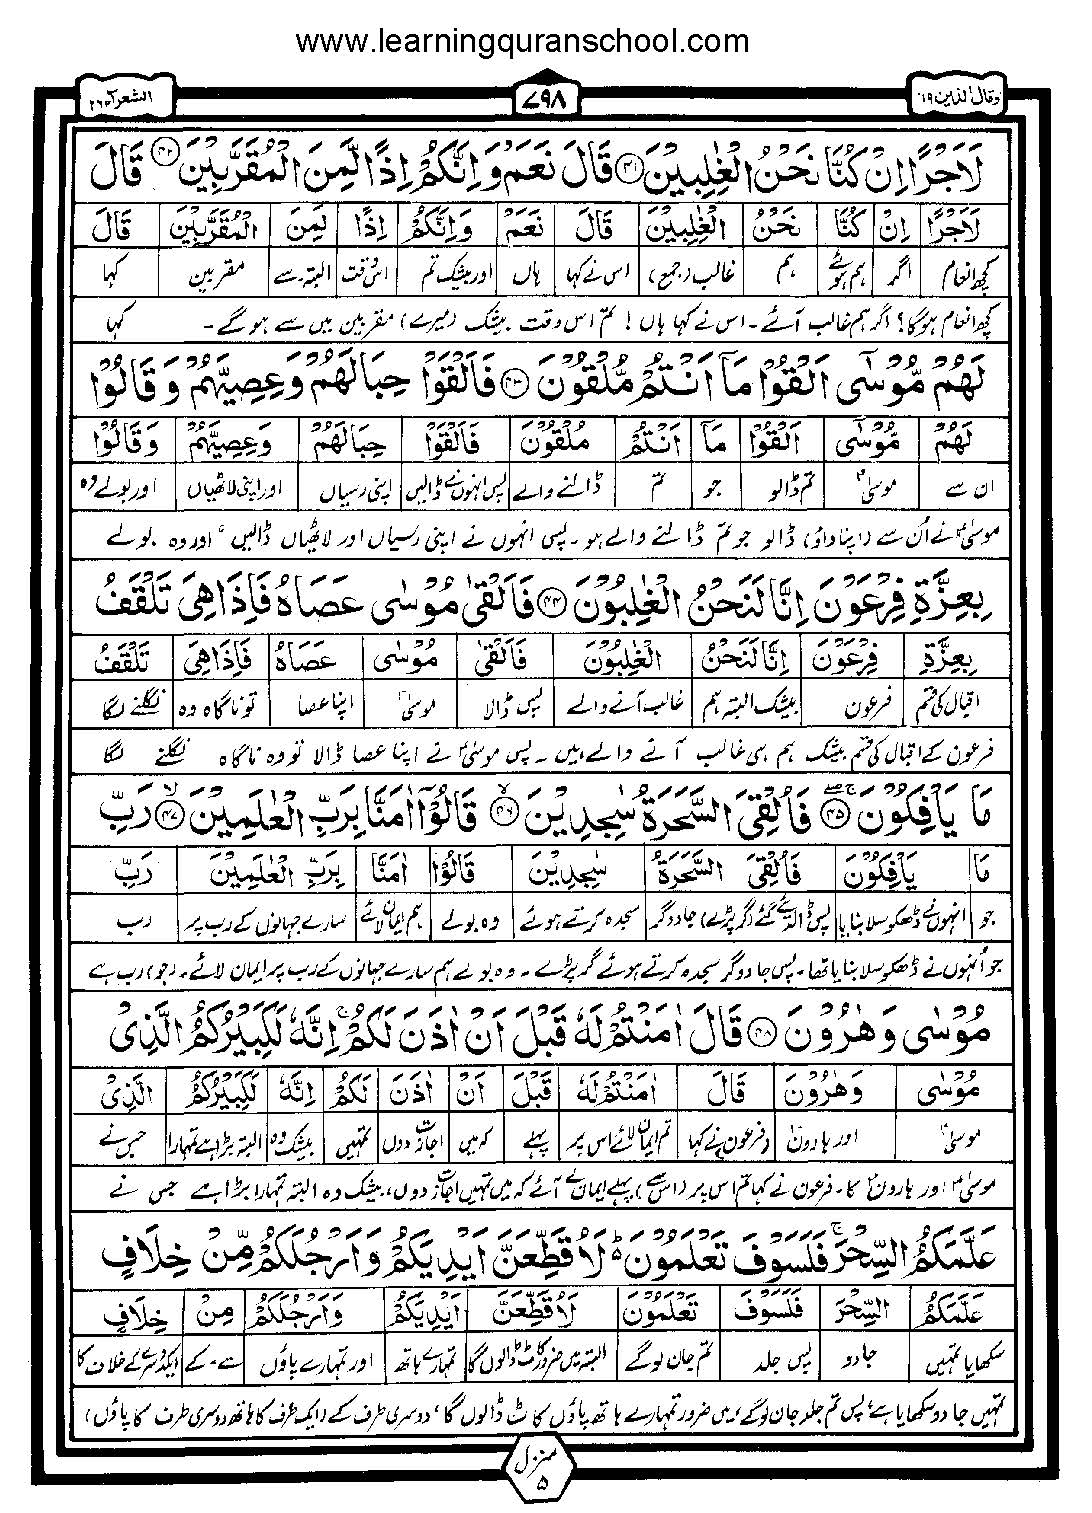 www.learningquranschool.com
وقال الذين ۱۹
۷۹۸
الشعرآء ۲۶
لَاَجْرًا اِنْ كُنَّا نَحْنُ الْغٰلِبِيْنَ ۴۱ قَالَ نَعَمْ وَاِنَّكُمْ اِذًا لَّمِنَ الْمُقَرَّبِيْنَ ۴۲ قَالَ
لَاَجْرًا اِنْ كُنَّا نَحْنُ الْغٰلِبِيْنَ قَالَ نَعَمْ وَاِنَّكُمْ اِذًا لَمِنَ الْمُقَرَّبِيْنَ قَالَ
کچھ انعام اگر ہم ہوئے ہم غالب (جمع) اس نے کہا ہاں اور بیشک تم اس وقت البتہ۔سے مقربین کہا
کچھ انعام ہوگا؟ اگر ہم غالب آئے۔ اس نے کہا ہاں! تم اس وقت بیشک (میرے) مقربین میں سے ہوگے۔ کہا
لَهُمْ مُّوْسٰٓى اَلْقُوْا مَآ اَنْتُمْ مُّلْقُوْنَ ۴۳ فَاَلْقَوْا حِبَالَهُمْ وَعِصِيَّهُمْ وَقَالُوْا
لَهُمْ مُّوْسٰٓى اَلْقُوْا مَآ اَنْتُمْ مُلْقُوْنَ فَاَلْقَوْا حِبَالَهُمْ وَعِصِيَّهُمْ وَقَالُوْا
ان سے موسیٰؑ تم ڈالو جو تم ڈالنے والے پس انہوں نے ڈالیں اپنی رسیاں اور اپنی لاٹھیاں اور بولے وہ
موسیٰؑ نے اُن سے (اپنا داؤ) ڈالو جو تم ڈالنے والے ہو۔ پس انہوں نے اپنی رسیاں اور لاٹھیاں ڈالیں، اور وہ بولے
بِعِزَّةِ فِرْعَوْنَ اِنَّا لَنَحْنُ الْغٰلِبُوْنَ ۴۴ فَاَلْقٰى مُوْسٰى عَصَاهُ فَاِذَا هِىَ تَلْقَفُ
بِعِزَّةِ فِرْعَوْنَ اِنَّا لَنَحْنُ الْغٰلِبُوْنَ فَاَلْقٰى مُوْسٰى عَصَاهُ فَاِذَا هِىَ تَلْقَفُ
اقبال کی قسم فرعون بیشک البتہ ہم غالب آنے والے پس ڈالا موسیٰؑ اپنا عصا تو ناگاہ وہ نگلنے لگا
فرعون کے اقبال کی قسم بیشک ہم ہی غالب آنے والے ہیں۔ پس موسیٰؑ نے اپنا عصا ڈالا تو وہ ناگاہ نگلنے لگا
مَا يَاْفِكُوْنَ ۴۵ فَاُلْقِىَ السَّحَرَةُ سٰجِدِيْنَ ۴۶ قَالُوْٓا اٰمَنَّا بِرَبِّ الْعٰلَمِيْنَ ۴۷ رَبِّ
مَا يَاْفِكُوْنَ فَاُلْقِىَ السَّحَرَةُ سٰجِدِيْنَ قَالُوْٓا اٰمَنَّا بِرَبِّ الْعٰلَمِيْنَ رَبِّ
جو انہوں نے ڈھکوسلا بنایا پس ڈالدیئے گئے (گر پڑے) جادوگر سجدہ کرتے ہوئے وہ بولے ہم ایمان لائے سارے جہانوں کے رب پر رب
جو اُنہوں نے ڈھکوسلا بنایا تھا۔ پس جادوگر سجدہ کرتے ہوئے گر پڑے۔ وہ بولے ہم سارے جہانوں کے رب پر ایمان لائے۔ (جو) رب ہے
مُوْسٰى وَهٰرُوْنَ ۴۸ قَالَ اٰمَنْتُمْ لَهٗ قَبْلَ اَنْ اٰذَنَ لَكُمْ ۚ اِنَّهٗ لَكَبِيْرُكُمُ الَّذِىْ
مُوْسٰى وَهٰرُوْنَ قَالَ اٰمَنْتُمْ لَهٗ قَبْلَ اَنْ اٰذَنَ لَكُمْ اِنَّهٗ لَكَبِيْرُكُمُ الَّذِىْ
موسیٰؑ اور ہارونؑ (فرعون) نے کہا تم ایمان لائے اس پر پہلے کہ میں اجازت دوں تمہیں بیشک وہ البتہ بڑا ہے تمہارا جس نے
موسیٰؑ اور ہارونؑ کا۔ فرعون نے کہا تم اس پر (اس سے) پہلے ایمان لے آئے کہ میں تمہیں اجازت دوں، بیشک وہ البتہ تمہارا بڑا ہے جس نے
عَلَّمَكُمُ السِّحْرَ ۚ فَلَسَوْفَ تَعْلَمُوْنَ ؕ لَاُقَطِّعَنَّ اَيْدِيَكُمْ وَاَرْجُلَكُمْ مِّنْ خِلَافٍ
عَلَّمَكُمُ السِّحْرَ فَلَسَوْفَ تَعْلَمُوْنَ لَاُقَطِّعَنَّ اَيْدِيَكُمْ وَاَرْجُلَكُمْ مِنْ خِلَافٍ
سکھایا تمہیں جادو پس جلد تم جان لوگے البتہ میں ضرور کاٹ ڈالوں گا تمہارے ہاتھ اور تمہارے پاؤں سے۔کے ایکدوسرے کے خلاف کا
تمہیں جادو سکھایا ہے، پس تم جلد جان لوگے، میں ضرور تمہارے ہاتھ پاؤں کاٹ ڈالوں گا، دوسری طرف کے (ایک طرف کا ہاتھ دوسری طرف کا پاؤں)
منزل
۵